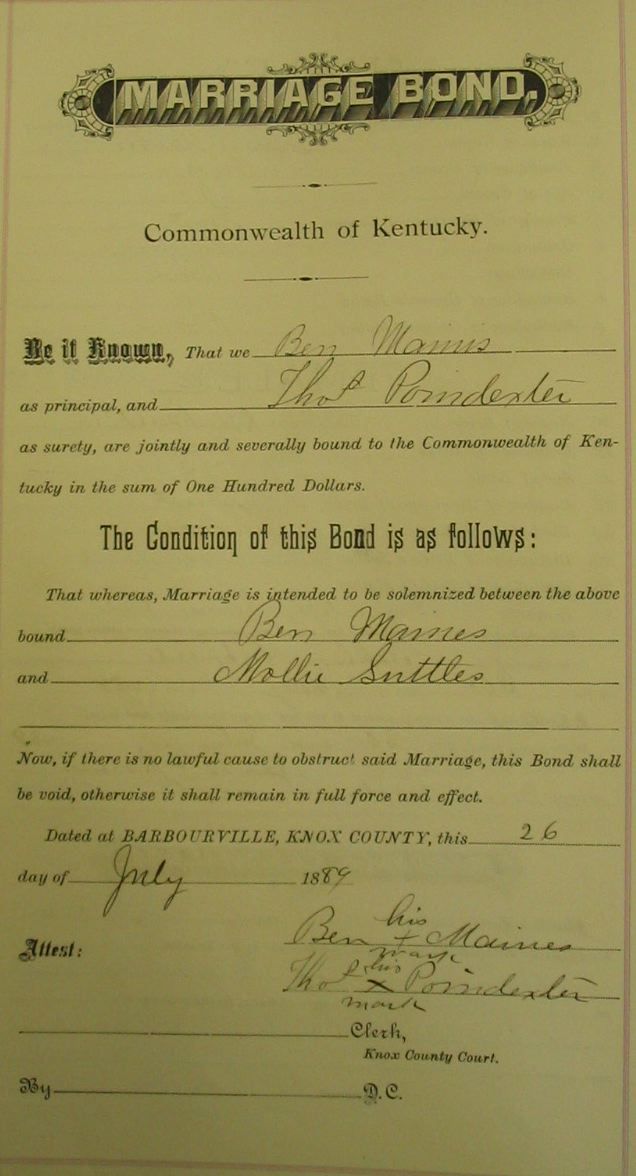 MARRIAGE BOND.
Commonwealth of Kentucky.
Be it Known, That we Ben Maines
as principal, and Thos Poindexter
as surety, are jointly and severally bound to the Commonwealth of Ken-
tucky in the sum of One Hundred Dollars.
The Condition of this Bond is as follows:
That whereas, Marriage is intended to be solemnized between the above
bound Ben Maines
and Mollie Suttles
Now, if there is no lawful cause to obstruct said Marriage, this Bond shall
be void, otherwise it shall remain in full force and effect.
Dated at BARBOURVILLE, KNOX COUNTY, this 26
day of July 1889
his
Attest: Ben + Maines
mark
his
Thos x Poindexter
mark
Clerk,
Knox County Court.
By D.C.